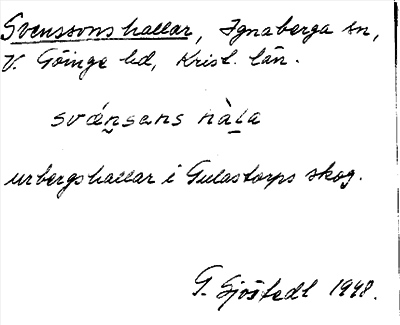 Svenssons hallar, Ignaberga sn,
V. Göinge hd, Krist. län.
svǽn̰sans hàḻa
urbergshallar i Gulastorps skog.
G. Sjöstedt 1948.